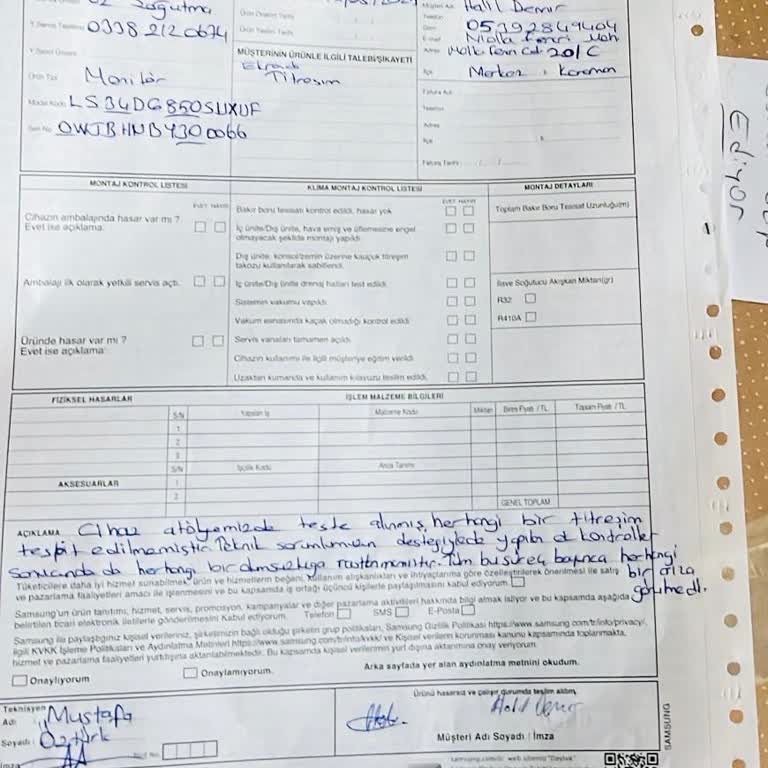 Soğutma
Ürün Garanti Tarihi
Müşteri Adı Halil Demir
Telefon
Y.Servis Telefonu 0338 212 0674
Gsm 05392849404
E-mail
Y.Servis Ünvanı
MÜŞTERİNİN ÜRÜNLE İLGİLİ TALEBİ/ŞİKAYETİ
Adres 201/C
Ekranda
Titreşim
Ürün Tipi Monitör
İlçe Merkez / Karaman
Model Kodu LS34DG850SUXUF
Fatura Adı
Telefon
Seri No 0WTBHNBY300066
Adres
İlçe
Fatura Tarihi
MONTAJ KONTROL LİSTESİ
KLİMA MONTAJ KONTROL LİSTESİ
MONTAJ DETAYLARI
EVET HAYIR
EVET HAYIR
Bakır boru tesisatı kontrol edildi, hasar yok
Toplam Bakır Boru Tesisat Uzunluğu(m)
Cihazın ambalajında hasar var mı ?
Evet ise açıklama:
İç ünite/Dış ünite, hava emiş ve üflemesine engel
olmayacak şekilde montajı yapıldı
Dış ünite, konsol/zemin üzerine kauçuk titreşim
takozu kullanılarak sabitlendi.
Ambalajı ilk olarak yetkili servis açtı.
İç ünite/Dış ünite drenaj hatları test edildi
İlave Soğutucu Akışkan Miktarı(gr)
Sistemin vakumu yapıldı
R32
Vakum esnasında kaçak olmadığı kontrol edildi
R410A
Üründe hasar var mı ?
Evet ise açıklama:
Servis vanaları tamamen açıldı
Cihazın kullanımı ile ilgili müşteriye eğitim verildi
Uzaktan kumanda ve kullanım kılavuzu teslim edildi.
FİZİKSEL HASARLAR
İŞLEM MALZEME BİLGİLERİ
S/N Yapılan İş Malzeme Kodu Miktar Birim Fiyatı / TL Toplam Fiyatı / TL
1
2
3
S/N İşçilik Kodu Arıza Tanımı
AKSESUARLAR
1
2
GENEL TOPLAM
AÇIKLAMA Cihaz atölyemizde teste alınmış, herhangi bir titreşim
tespit edilmemiştir. Teknik sorumlumuzun desteğiylede yapılan ek kontroller
sonucunda da herhangi bir olumsuzluğa rastlanmamıştır. Tüm bu süreç boyunca herhangi
bir arıza
görülmedi.
Tüketicilere daha iyi hizmet sunabilmek, ürün ve hizmetlerin beğeni, kullanım alışkanlıkları ve ihtiyaçlarına göre özelleştirilerek önerilmesi ile satış
ve pazarlama faaliyetleri amacı ile işlenmesini ve bu kapsamda iş ortağı üçüncü kişilerle paylaşılmasını kabul ediyorum.
Samsung'un ürün tanıtımı, hizmet, servis, promosyon, kampanyalar ve diğer pazarlama aktivitileri hakkında bilgi almak istiyor ve bu kapsamda aşağıda
belirtilen ticari elektronik iletilerle gönderilmesini Kabul ediyorum. Telefon SMS E-Posta
Samsung ile paylaştığınız kişisel verileriniz, şirketimizin bağlı olduğu şirketin grup politikaları, Samsung Gizlilik Politikası https://www.samsung.com/tr/info/privacy/,
ilgili KVKK İşleme Politikaları ve Aydınlatma Metinleri https://www.samsung.com/tr/info/kvkk/ ve Kişisel verilerin korunması kanunu kapsamında toplanmakta,
hizmet ve pazarlama faaliyetleri yurtdışına aktarılabilmektedir. Bu kapsamda kişisel verilerimin yurt dışına aktarımına onay veriyorum.
Onaylıyorum
Onaylamıyorum.
Arka sayfada yer alan aydınlatma metnini okudum.
Teknisyen
Adı Mustafa
Soyadı Öztürk
İmza
Ürünü hasarsız ve çalışır durumda teslim aldım.
Halil Demir
Müşteri Adı Soyadı / İmza
SAMSUNG
Ediyor